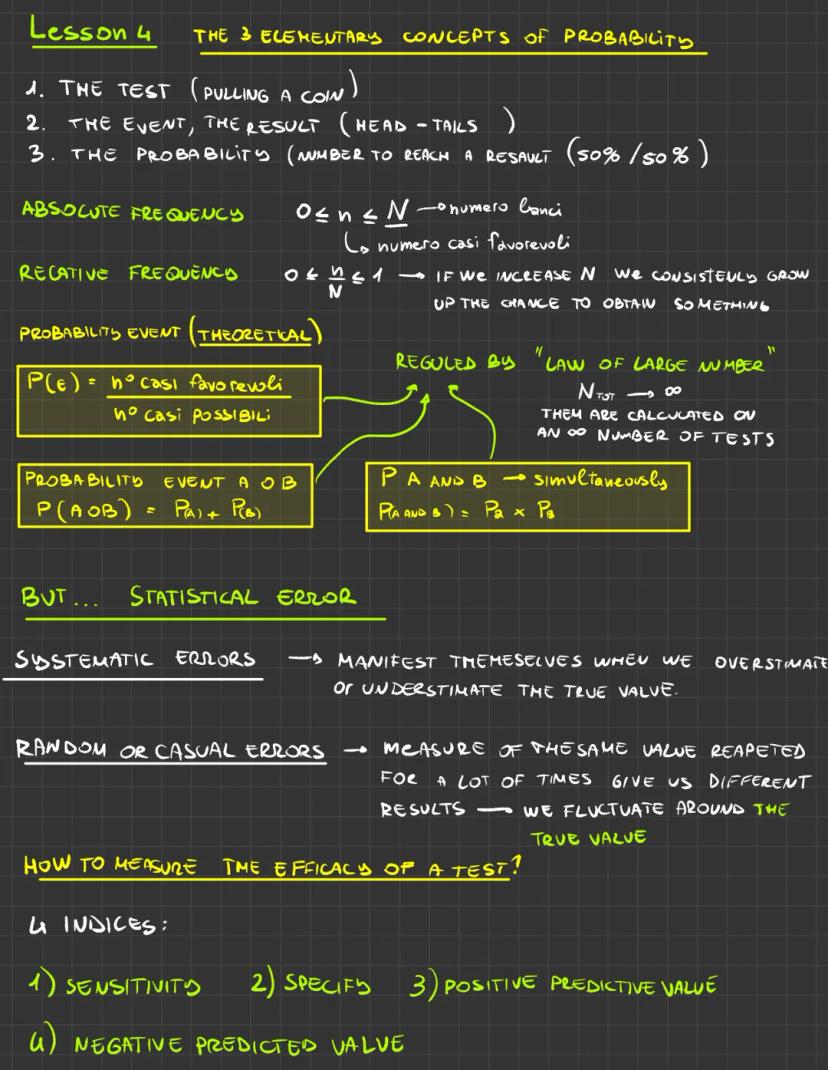 Lesson 4 THE 3 ELEMENTARY CONCEPTS OF PROBABILITY
1. THE TEST (PULLING A COIN)
2. THE EVENT, THE RESULT (HEAD - TAILS )
3. THE PROBABILITY (NUMBER TO REACH A RESAULT (50% / 50%)
ABSOLUTE FREQUENCY 0 ≤ n ≤ N → numero lanci
↳ numero casi favorevoli
RELATIVE FREQUENCY 0 ≤ n/N ≤ 1 → IF WE INCREASE N WE CONSISTENLY GROW
UP THE CHANCE TO OBTAIN SOMETHING
PROBABILITY EVENT (THEORETICAL)
P(E) = n° casi favorevoli / n° casi possibili
REGULED BY "LAW OF LARGE NUMBER"
N TOT → ∞
THEM ARE CALCULATED ON
AN ∞ NUMBER OF TESTS
PROBABILITY EVENT A O B
P(A O B) = P(A) + P(B)
P A AND B → simultaneously
P(A AND B) = Pa × PB
BUT... STATISTICAL ERROR
SYSTEMATIC ERRORS → MANIFEST THEMESELVES WHEN WE OVERSTIMATE
OR UNDERSTIMATE THE TRUE VALUE.
RANDOM OR CASUAL ERRORS → MEASURE OF THE SAME VALUE REAPETED
FOR A LOT OF TIMES GIVE US DIFFERENT
RESULTS → WE FLUCTUATE AROUND THE
TRUE VALUE
HOW TO MEASURE THE EFFICACY OF A TEST?
4 INDICES:
1) SENSITIVITY 2) SPECIFY 3) POSITIVE PREDICTIVE VALUE
4) NEGATIVE PREDICTED VALUE